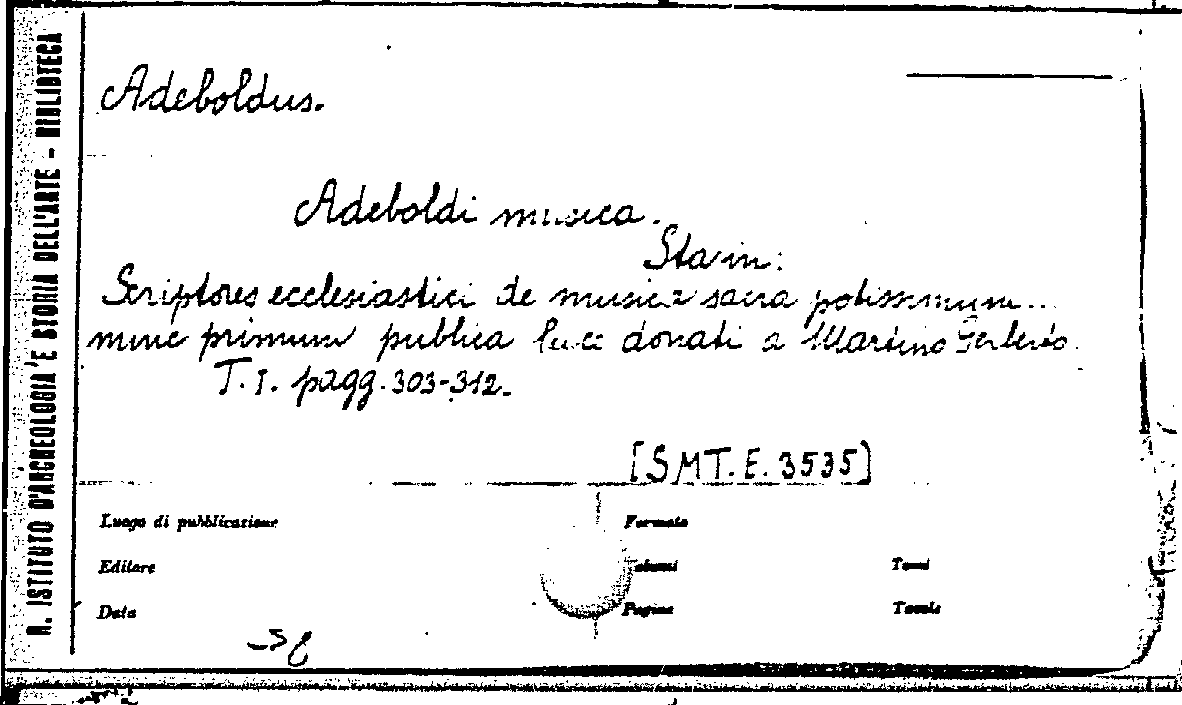 R. ISTITUTO D'ARCHEOLOGIA E STORIA DELL'ARTE - BIBLIOTECA
Adeboldus.
Adeboldi musica.
Sta in:
Scriptores ecclesiastici de musica sacra potissimum...
nunc primum publica luce donati a Martino Gerberto.
T. I. pagg. 303-312.
[SMT. E. 3535]
Luogo di pubblicazione Formato
Editore Volumi Tomi
Data Pagine Tavole